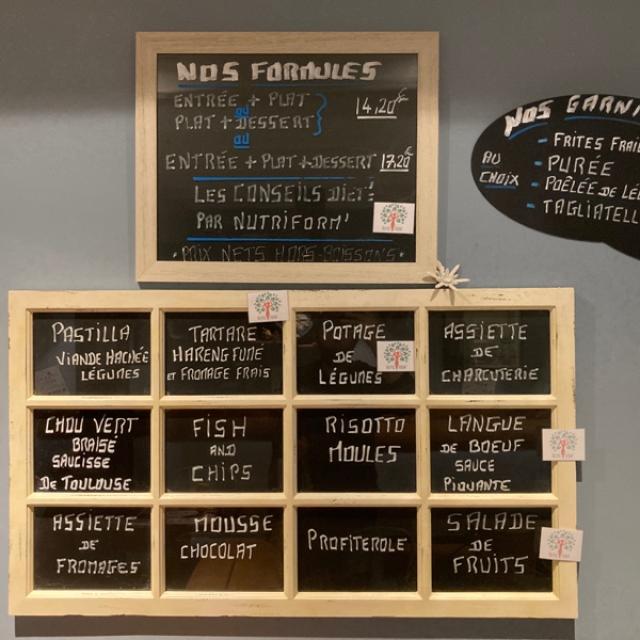 NOS FORMULES
ENTRÉE + PLAT
ou
PLAT + DESSERT
14,20€
ou
ENTRÉE + PLAT + DESSERT 17,20€
LES CONSEILS DIET:
PAR NUTRIFORM'
• PRIX NETS HORS-BOISSONS •
NOS GARNI
AU
CHOIX
- FRITES FRAI
- PURÉE
- POÊLÉE DE LÉ
- TAGLIATELL
PASTILLA
VIANDE HACHÉE
LÉGUMES
TARTARE
HARENG FUMÉ
ET FROMAGE FRAIS
POTAGE
DE
LÉGUMES
ASSIETTE
DE
CHARCUTERIE
CHOU VERT
BRAISÉ
SAUCISSE
DE TOULOUSE
FISH
AND
CHIPS
RISOTTO
MOULES
LANGUE
DE BOEUF
SAUCE
PIQUANTE
ASSIETTE
DE
FROMAGES
MOUSSE
CHOCOLAT
PROFITEROLE
SALADE
DE
FRUITS